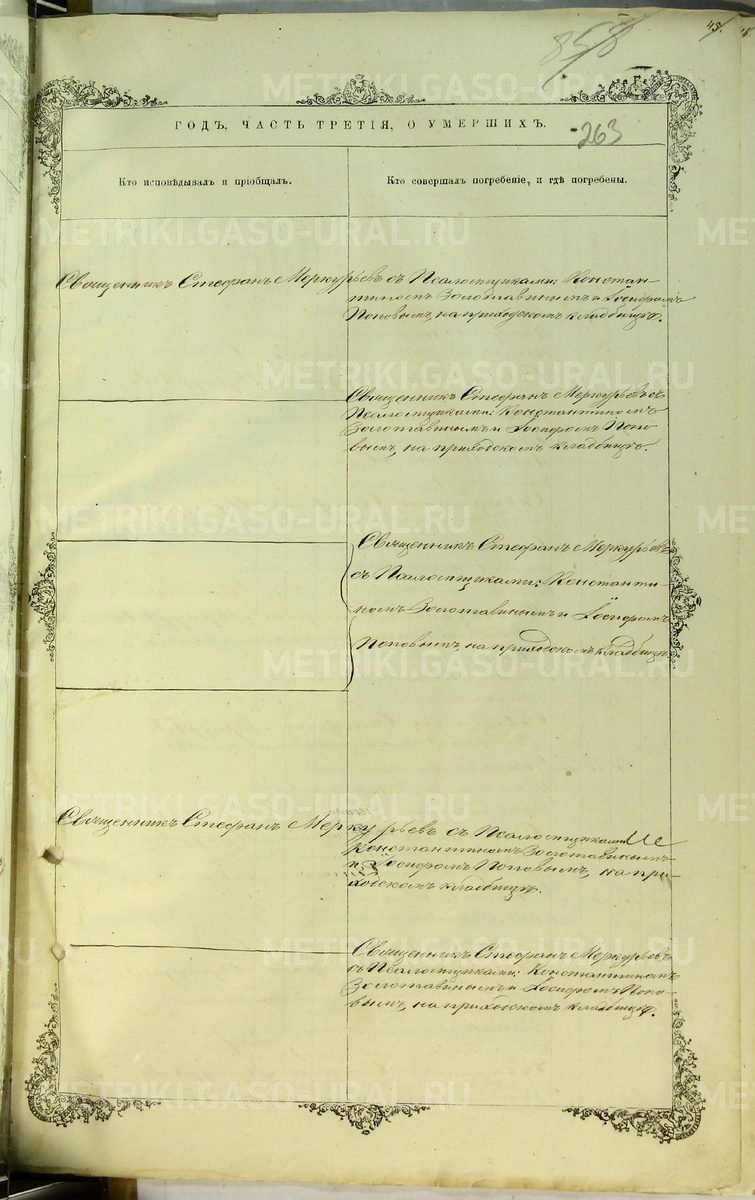 45.
858
ГОДЪ, ЧАСТЬ ТРЕТІЯ, О УМЕРШИХЪ.
263
Кто исповѣдывалъ и пріобщалъ.
Кто совершалъ погребеніе, и гдѣ погребены.
Священникъ Стефанъ Меркурьевъ съ Псаломщиками: Констан-
тиномъ Золотавинымъ и
Поповымъ, на приходскомъ кладбищѣ.
Священникъ Стефанъ Меркурьевъ съ
Псаломщиками: Константиномъ
Золотавинымъ и Попо-
вымъ, на приходскомъ кладбищѣ.
Священникъ Стефанъ Меркурьевъ
съ Псаломщиками: Константи-
номъ Золотавинымъ и
Поповымъ, на приходскомъ кладбищѣ.
Священникъ Стефанъ Меркурьевъ съ Псаломщиками
Константиномъ Золотавинымъ
и Поповымъ, на при-
ходскомъ кладбищѣ.
Священникъ Стефанъ Меркурьевъ
съ Псаломщиками: Константиномъ
Золотавинымъ и Попо-
вымъ, на приходскомъ кладбищѣ.
METRIKI.GASO-URAL.RU